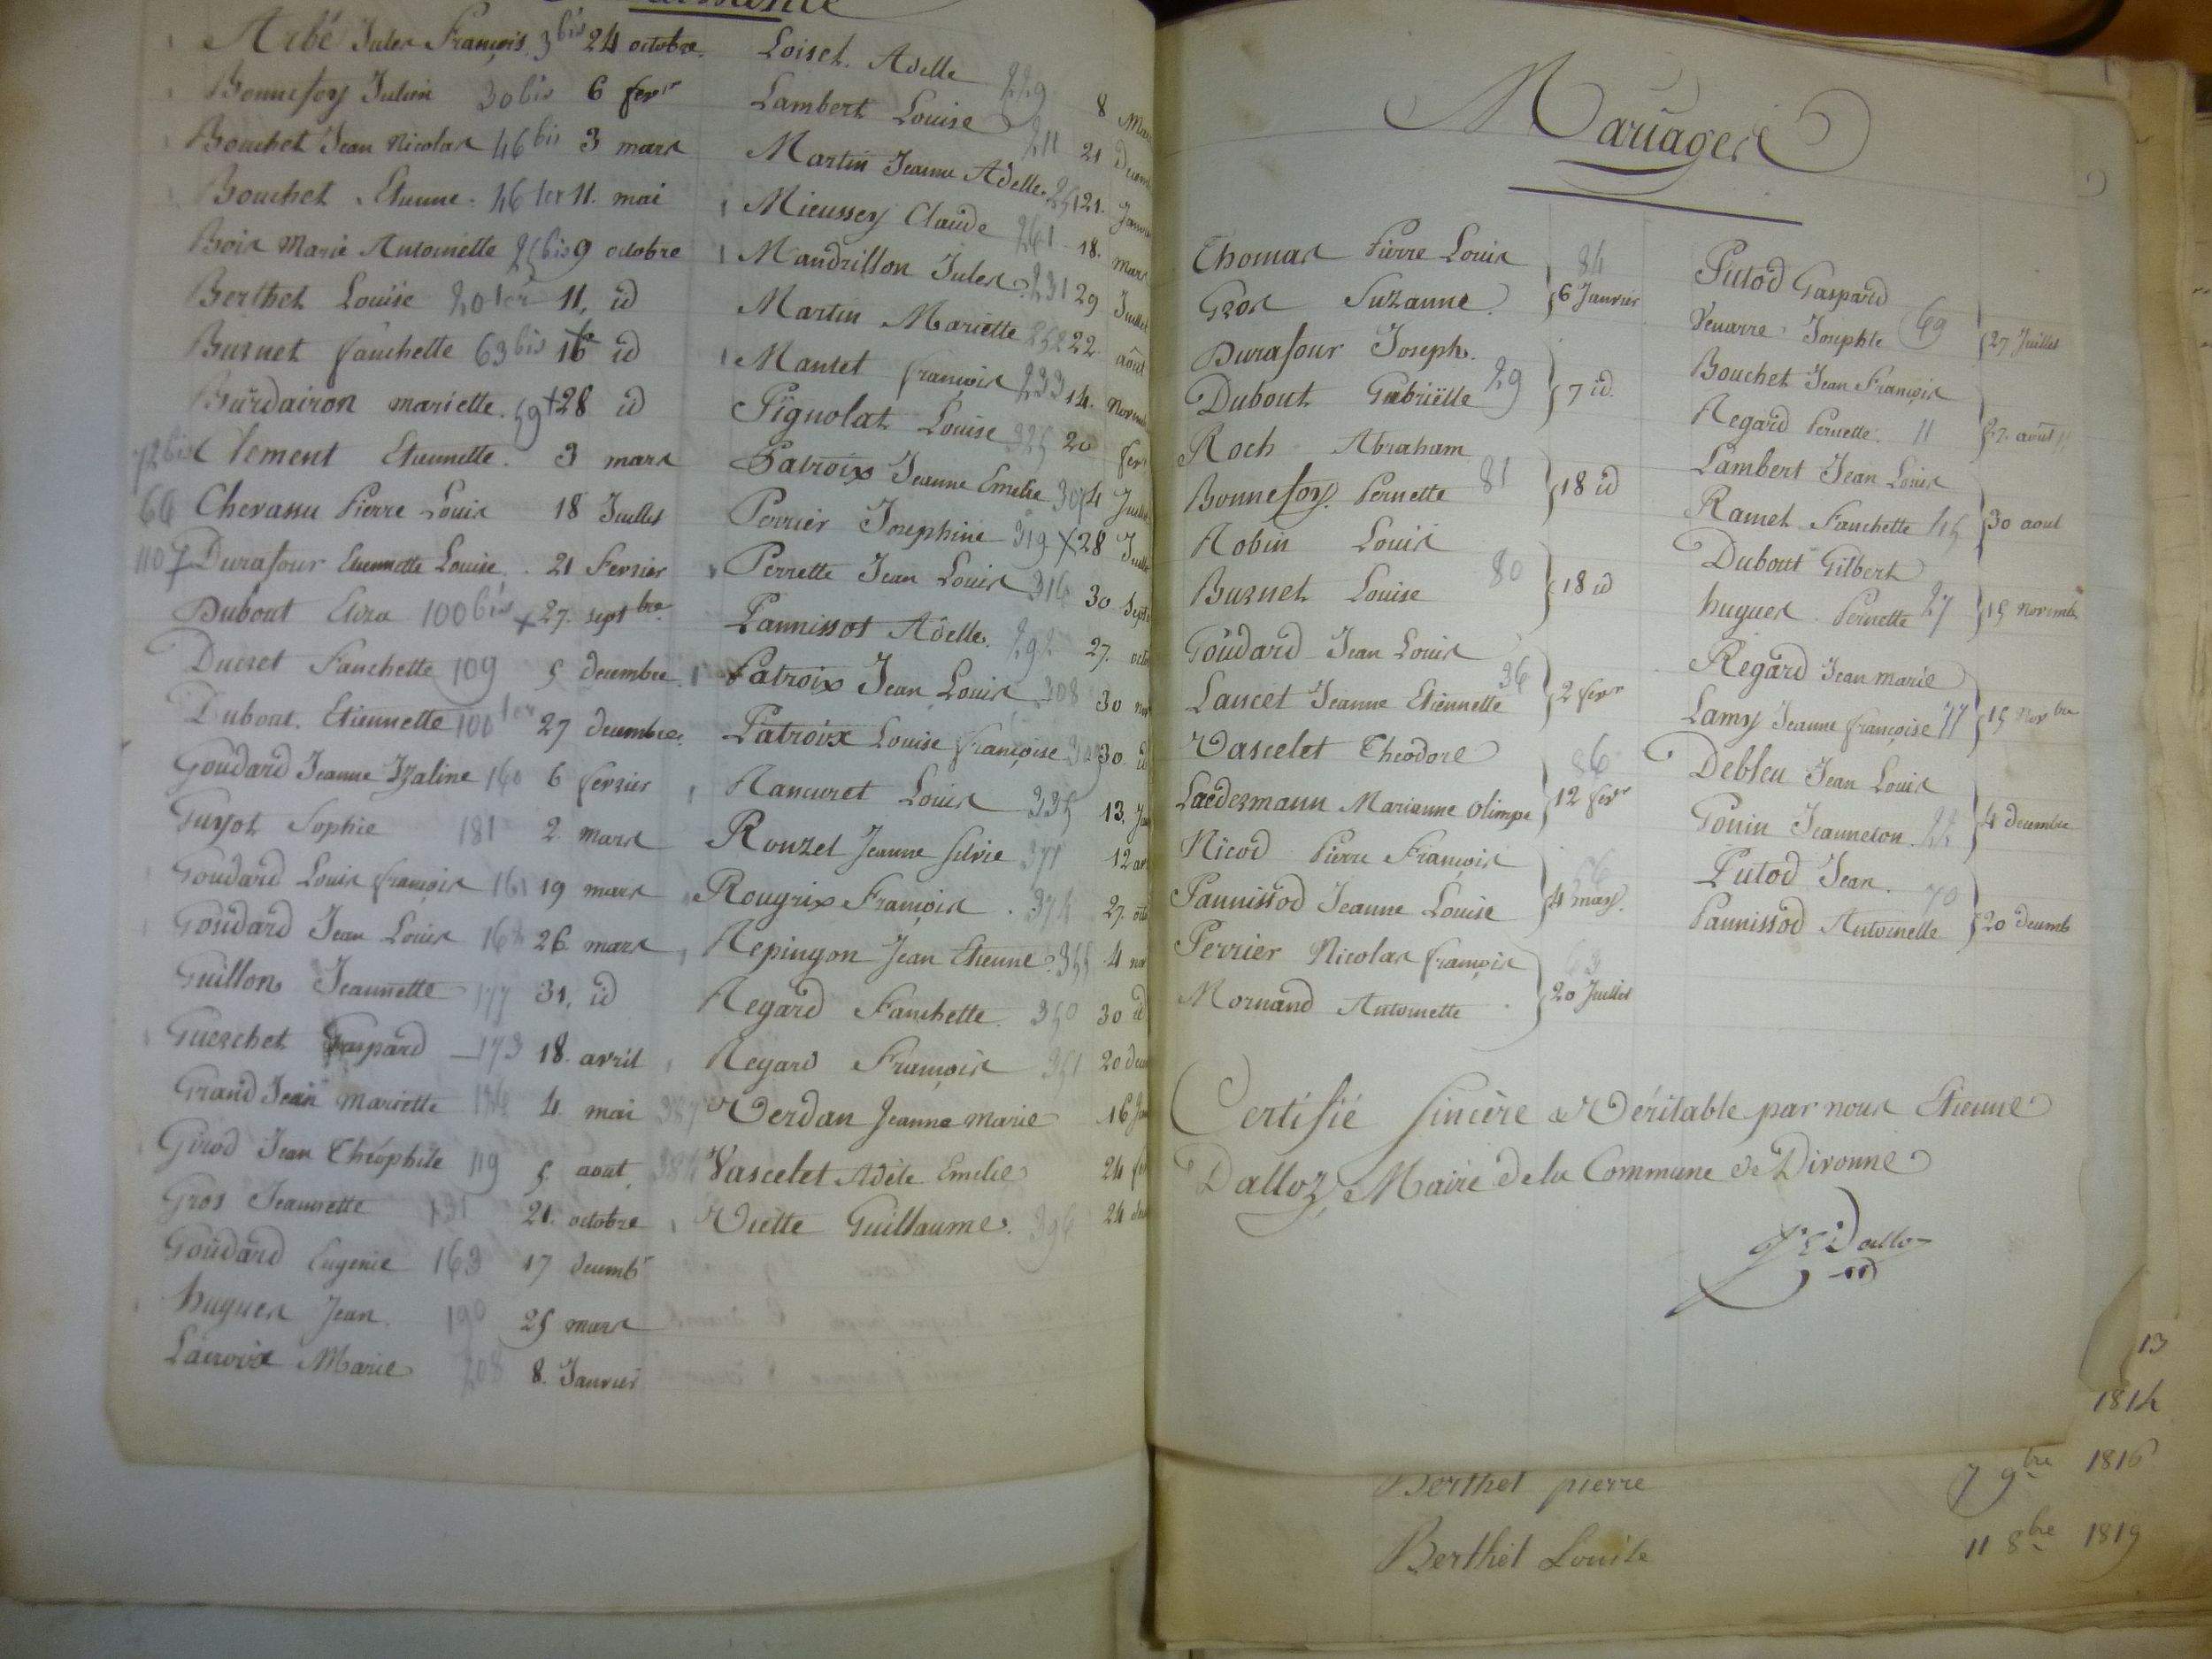 Arbé Jules François 3 bis 24 octobre
Bonnefoy Julien 30 bis 6 fevr
Bouchet Jean Nicolas 46 bis 3 mars
Bouchet Etienne 46 ter 11. mai
Bois Marie Antoinette 25 bis 9 octobre
Berthet Louise 20 ter 11, id
Burnet fanchette 63 bis 16 id
Burdairon mariette. 59 28 id
72 bis Clement Etiennette. 3 mars
66 Chevassu Pierre Louis 18 Juillet
107 Durafour Etiennette Louise. 21 Fevrier
Dubout Elisa 100 bis 27. sept bre
Ducret Fanchette 109 5 decembre
Dubout. Etiennette 100 ter 27 decembre
Goudard Jeanne Izaline 160 6 fevrier
Guyot Sophie 181 2 mars
Goudard Louis françois 161 19 mars
Goudard Jean Louis 162 26 mars
Guillon Jeannette 177 31, id
Guerchet Gaspard 173 18. avril
Grand Jean mariette 4 mai
Girod Jean Théophile 119 5. aout
Gros Jeannette 131 21. octobre
Goudard Eugenie 163 17 decemb
hugues Jean. 190 25 mars
Lacroix Marie 208 8. Janvier
Loiset. Adelle 229 8
Lambert Louise 211 21
Martin Jeanne Adelle. 251 21.
Mieussey Claude 261 18. mars
Mandrillon Jules 231 29 Juillet
Martin Mariette 252 22 août
Manset françois 233 14.
Pignolat Louise 325 20
Patroix Jeanne Emelie 307 4
Perrier Josephine 319 28
Perrette Jean Louis 316 30
Pannissot Adelle. 292 27.
Patroix Jean Louis 308 30
Patroix Louise françoise 309 30 id
Rancuret Louis 335 13.
Rouzet Jeanne silvie 371 12
Rougrix François. 374 27.
Repingon Jean Etienne 355 4
Regard Fanchette. 350 30 id
Regard François 351 20
387 Verdan Jeanne marie 16
384 Vascelet Adèle Emelie 24
Viette Guillaume. 396 24
Mariages
Thomas Pierre Louis 84
Gros Suzanne. 6 Janvier
Durafour Joseph.
Dubout Gabriëlle 29 7 id.
Roch Abraham
Bonnefoy. Pernette 81 18 id
Robin Louis
Burnet Louise 80 18 id
Goudard Jean Louis
Lancet Jeanne Etiennette 36 2 fevr
Vascelet Theodore 86
Laedermann Marianne olimpe 12 fevr
Nicod Pierre François 56
Pannissod Jeanne Louise 4 may.
Perrier Nicolas françois 63
Mornand Antoinette 20 Juillet
Putod Gaspard
Venarre Josephte 69 27 Juillet
Bouchet Jean François
Regard Pernette. 11 27. août
Lambert Jean Louis
Ramet Fanchette 45 30 aout
Dubout Gilbert
hugues Pernette 27 15 novemb
Regard Jean marie
Lamy Jeanne françoise 77 15 Nov bre
Debleu Jean Louis
Gouin Jeanneton. 22 4 decembre
Putod Jean. 70
Pannissod Antoinette 20 decemb
Certifié sincère & Véritable par nous Etienne
Dalloz, Maire de la Commune de Divonne
Dalloz
13
1814
Berthet pierre 7 9bre 1816
Berthet Louise 11 8bre 1819